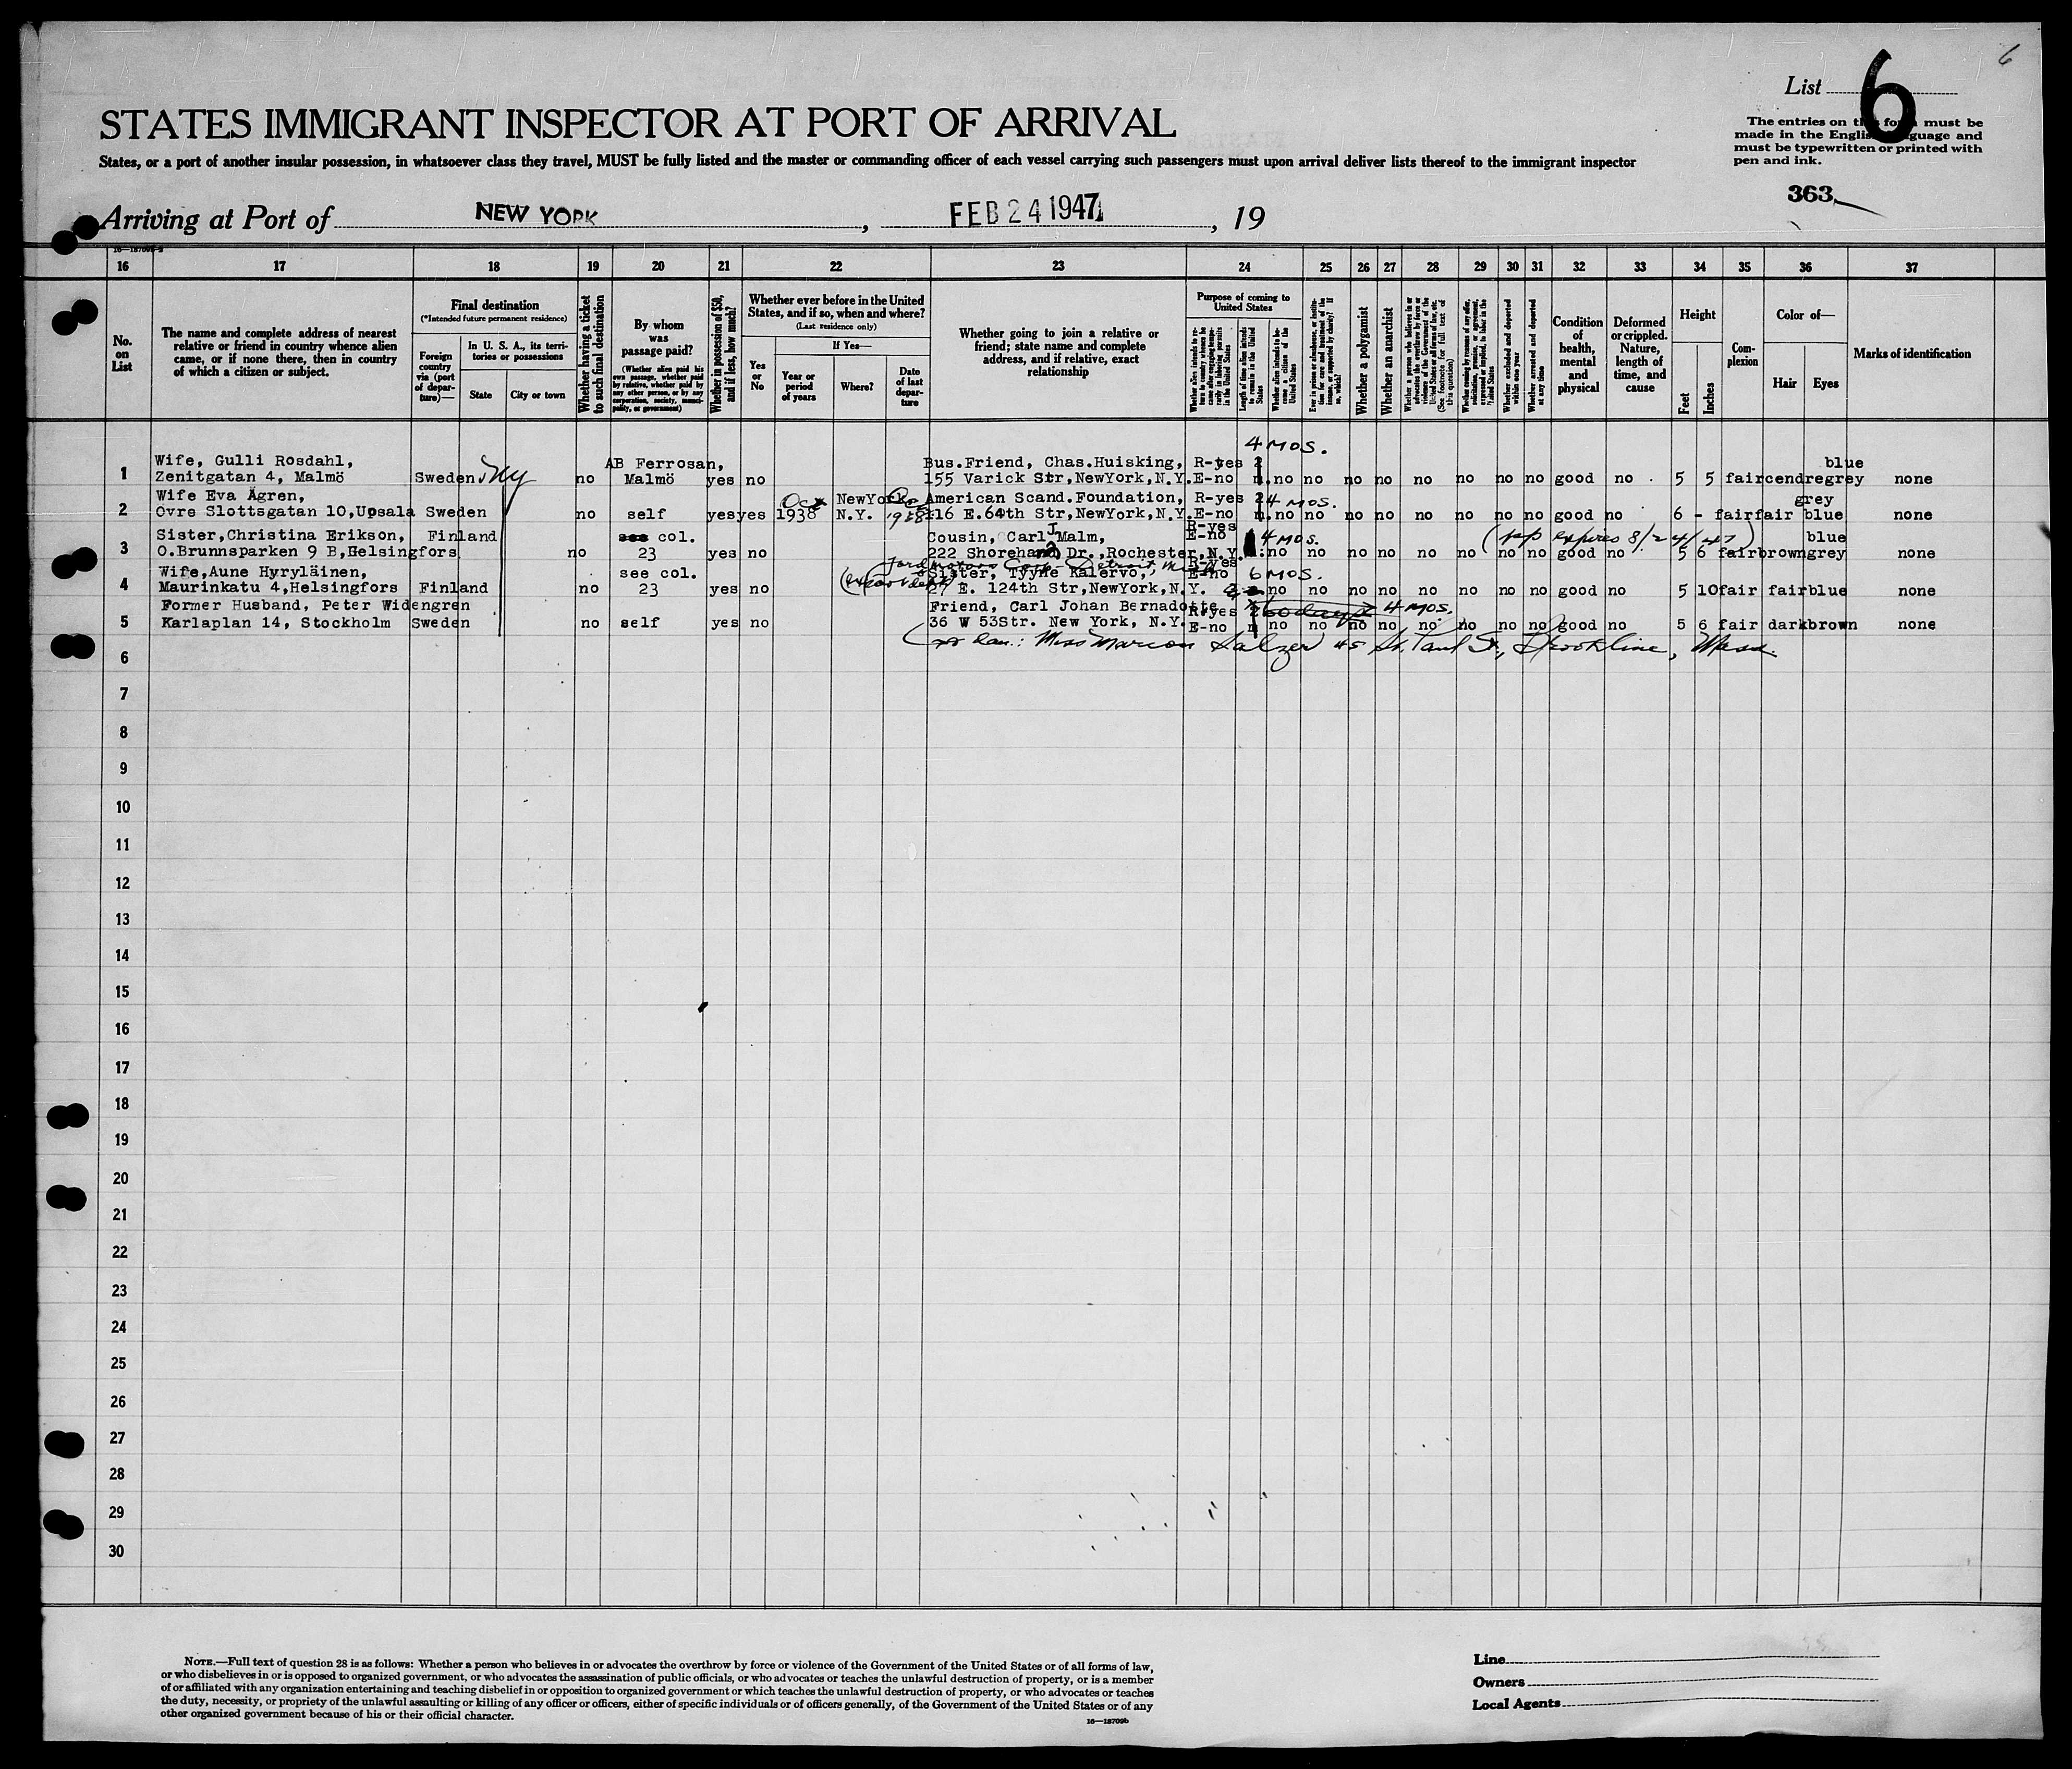 6
List 6
STATES IMMIGRANT INSPECTOR AT PORT OF ARRIVAL
The entries on this form must be
made in the English language and
must be typewritten or printed with
pen and ink.
States, or a port of another insular possession, in whatsoever class they travel, MUST be fully listed and the master or commanding officer of each vessel carrying such passengers must upon arrival deliver lists thereof to the immigrant inspector
363
Arriving at Port of NEW YORK, FEB 24 1947, 19
16 17 18 19 20 21 22 23 24 25 26 27 28 29 30 31 32 33 34 35 36 37
No.
on
List
The name and complete address of nearest
relative or friend in country whence alien
came, or if none there, then in country
of which a citizen or subject.
Final destination
(*Intended future permanent residence)
Foreign
country
via (port
of depar-
ture)—
In U. S. A., its terri-
tories or possessions
State
City or town
Whether having a ticket
to such final destination
By whom
was
passage paid?
(Whether alien paid his
own passage, whether paid
by relative, whether paid by
any other person, or by any
corporation, society, munici-
pality, or government)
Whether in possession of $50,
and if less, how much?
Whether ever before in the United
States, and if so, when and where?
(Last residence only)
Yes
or
No
If Yes—
Year or
period
of years
Where?
Date
of last
depar-
ture
Whether going to join a relative or
friend; state name and complete
address, and if relative, exact
relationship
Purpose of coming to
United States
Whether a polygamist
Whether an anarchist
Whether excluded and deported
within one year
Whether arrested and deported
at any time
Condition
of
health,
mental
and
physical
Deformed
or crippled.
Nature,
length of
time, and
cause
Height
Feet
Inches
Com-
plexion
Color of—
Hair
Eyes
Marks of identification
4 MOS.
Wife, Gulli Rosdahl, AB Ferrosan, Bus.Friend, Chas.Huisking, R-yes blue
1 Zenitgatan 4, Malmö Sweden NY no Malmö yes no 155 Varick Str,NewYork,N.Y. E-no no no no no no no no no good no 5 5 fair cendre grey none
Wife Eva Ågren, Oct NewYork American Scand.Foundation, R-yes 4 MOS. grey
2 Ovre Slottsgatan 10,Upsala Sweden no self yes yes 1938 N.Y. 116 E.64th Str,NewYork,N.Y. E-no no no no no no no no no good no 6 - fair fair blue none
Sister,Christina Erikson, Finland see col. Cousin, Carl J Malm, R-yes E-no 4 MOS. expires 8/24/47) blue
3 O.Brunnsparken 9 B,Helsingfors no 23 yes no 222 Shoreham Dr.,Rochester,N.Y. no no no no no no no no good no 5 6 fair brown grey none
Ford Motors Detroit, Mich
Wife,Aune Hyryläinen, see col. Sister, Tyyne Kalervo, R-yes E-no 6 MOS.
4 Maurinkatu 4,Helsingfors Finland no 23 yes no 27 E. 124th Str,NewYork,N.Y. no no no no no no no no good no 5 10 fair fair blue none
Former Husband, Peter Widengren Friend, Carl Johan Bernadotte R-yes 4 MOS.
5 Karlaplan 14, Stockholm Sweden no self yes no 36 W 53Str. New York, N.Y. E-no no no no no no no no no good no 5 6 fair dark brown none
Miss Marion Salzer 45 St. Paul St., Brookline, Mass.
6
7
8
9
10
11
12
13
14
15
16
17
18
19
20
21
22
23
24
25
26
27
28
29
30
NOTE.—Full text of question 28 is as follows: Whether a person who believes in or advocates the overthrow by force or violence of the Government of the United States or of all forms of law,
or who disbelieves in or is opposed to organized government, or who advocates the assassination of public officials, or who advocates or teaches the unlawful destruction of property, or is a member
of or affiliated with any organization entertaining and teaching disbelief in or opposition to organized government or which teaches the unlawful destruction of property, or who advocates or teaches
the duty, necessity, or propriety of the unlawful assaulting or killing of any officer or officers, either of specific individuals or of officers generally, of the Government of the United States or of any
other organized government because of his or their official character.
16—18709b
Line
Owners
Local Agents